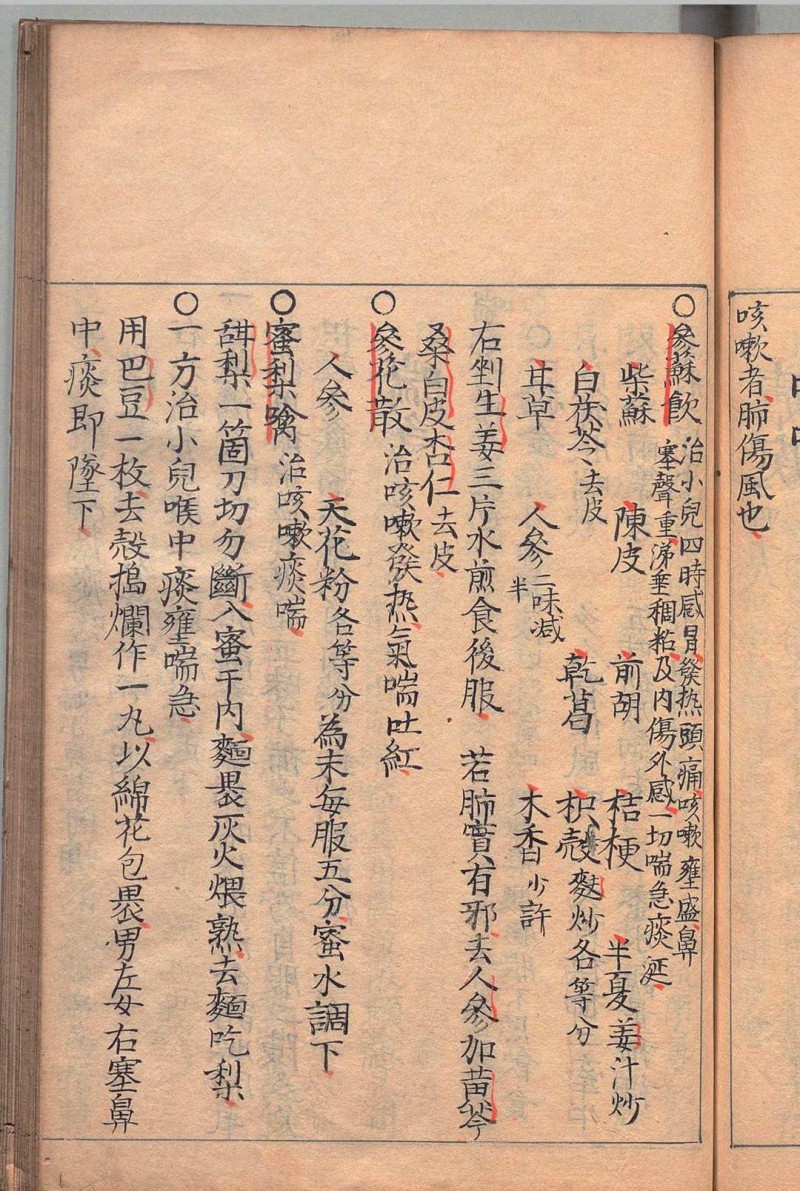 咳嗽者肺傷風也
〇參蘇飲 治小兒四時感冒發熱頭痛咳嗽壅盛鼻
塞聲重涕垂稠粘及内傷外感一切喘急痰涎
柴蘇 陳皮 前胡 桔梗 半夏姜汁炒
白茯苓去皮 乾葛 枳殻麩炒各等分
甘草 人參二味减半 木香少許
右剉生姜三片水煎食後服 若肺實有邪去人參加黄芩
桑白皮杏仁去皮
〇參花散 治咳嗽發热氣喘吐紅
人參 天花粉各等分為末每服五分蜜水調下
〇蜜梨噙 治咳嗽痰喘
甜梨一箇刀切勿斷入蜜于内麵裹灰火煨熟去麵吃梨
〇一方治小兒喉中痰壅喘急
用巴豆一枚去殻搗爛作一丸以綿花包裹男左女右塞鼻
中痰即墜下